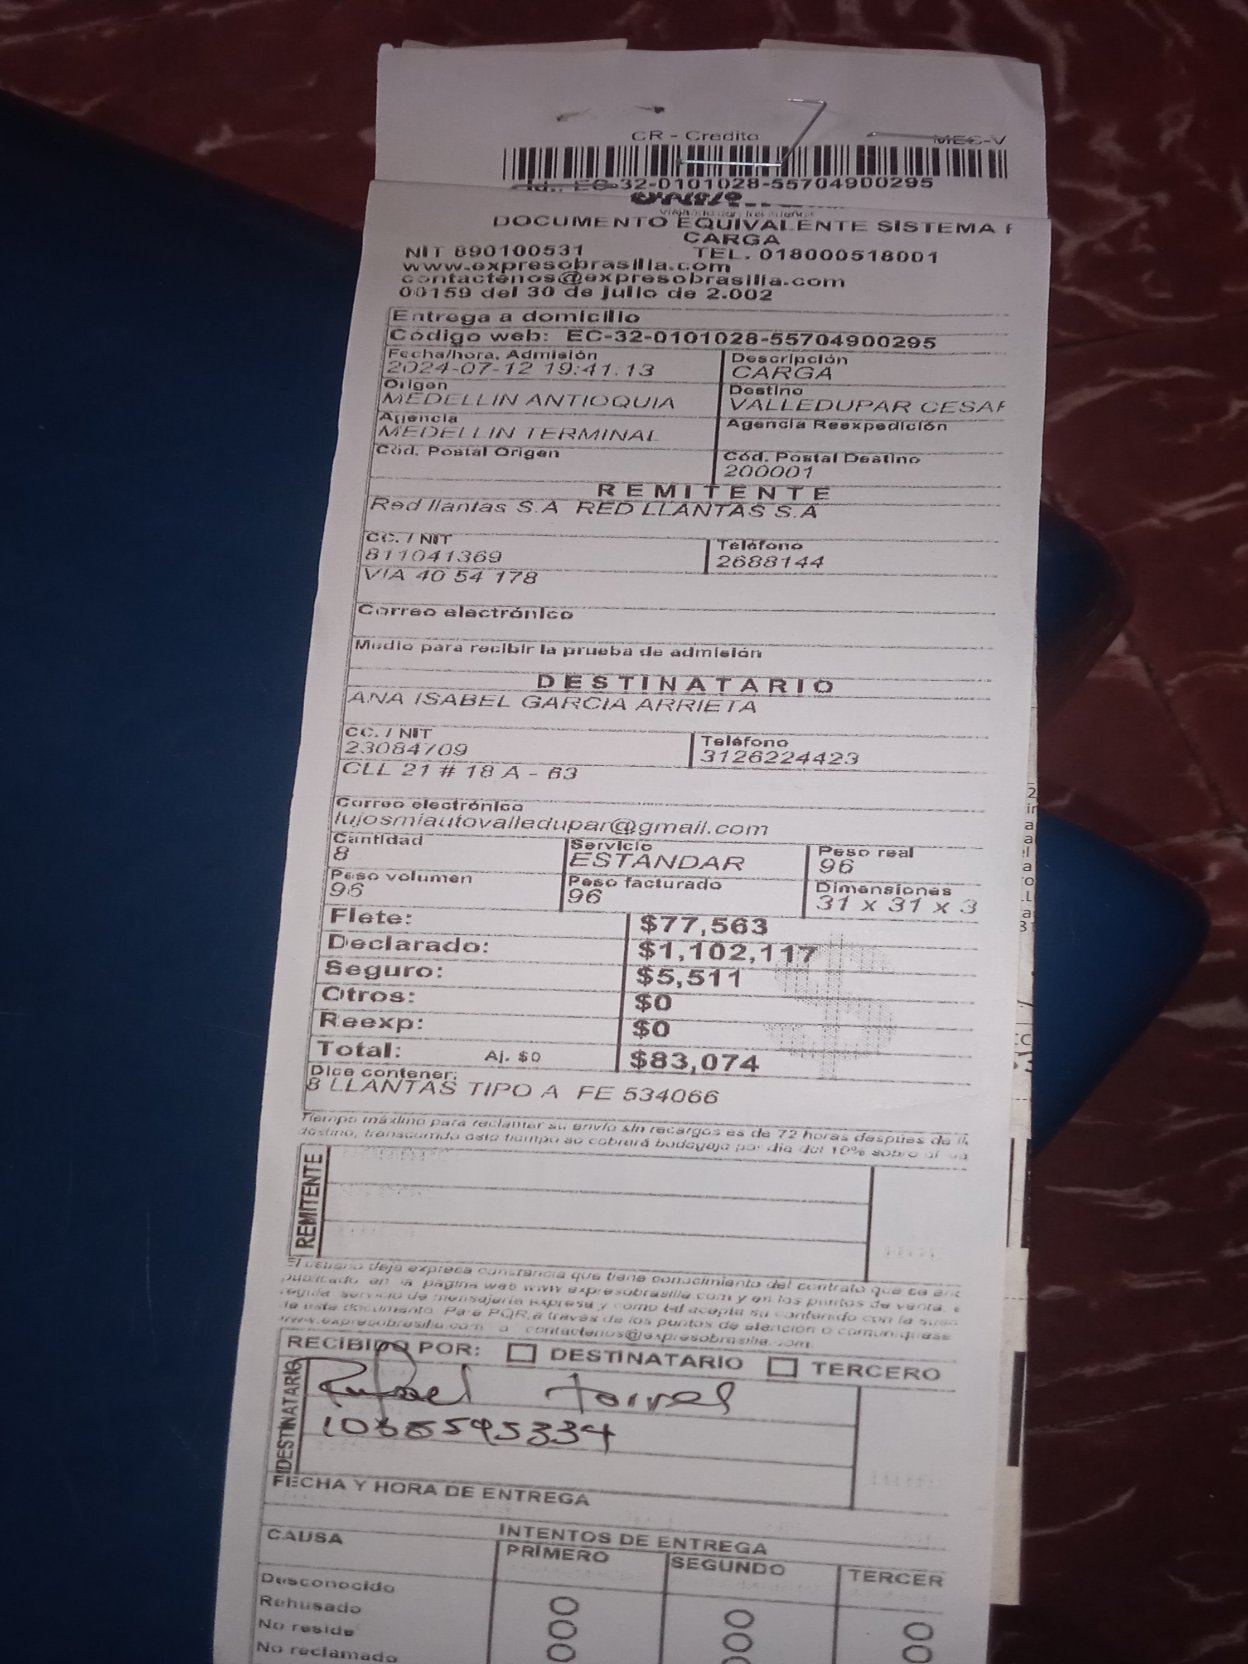 CR - Credito MEC-V
Id.: EC-32-0101028-55704900295
DOCUMENTO EQUIVALENTE SISTEMA
CARGA
NIT 890100531 TEL. 018000518001
www.expresobrasilia.com
contactenos@expresobrasilia.com
00159 del 30 de julio de 2.002
Entrega a domicilio
Código web: EC-32-0101028-55704900295
Fecha/hora. Admisión Descripción
2024-07-12 19:41:13 CARGA
Origen Destino
MEDELLIN ANTIOQUIA VALLEDUPAR CESAR
Agencia Agencia Reexpedición
MEDELLIN TERMINAL
Cód. Postal Origen Cód. Postal Destino
200001
REMITENTE
Red llantas S.A RED LLANTAS S.A
CC. / NIT Teléfono
811041369 2688144
VIA 40 54 178
Correo electrónico
Medio para recibir la prueba de admisión
DESTINATARIO
ANA ISABEL GARCIA ARRIETA
CC. / NIT Teléfono
23084709 3126224423
CLL 21 # 18 A - 63
Correo electrónico
lujosmiautovalledupar@gmail.com
Cantidad Servicio Peso real
8 ESTANDAR 96
Peso volumen Peso facturado Dimensiones
96 96 31 x 31 x 3
Flete: $77,563
Declarado: $1,102,117
Seguro: $5,511
Otros: $0
Reexp: $0
Total: Aj. $0 $83,074
Dice contener:
8 LLANTAS TIPO A FE 534066
Tiempo máximo para reclamar su envío sin recargos es de 72 horas despues de
destino, transcurrido este tiempo se cobrará bodegaje por día del 10% sobre el
REMITENTE
El usuario deja expresa constancia que tiene conocimiento del contrato que se
publicado en la página web www.expresobrasilia.com y en los puntos de venta,
regula servicio de mensajería expresa y como tal acepta su contenido con la
de este documento. Para PQR a través de los puntos de atención o comuníquese
www.expresobrasilia.com o contactenos@expresobrasilia.com
RECIBIDO POR: DESTINATARIO TERCERO
DESTINATARIO
Rafael Torres
FECHA Y HORA DE ENTREGA
CAUSA INTENTOS DE ENTREGA
PRIMERO SEGUNDO TERCER
Desconocido
Rehusado
No reside
No reclamado